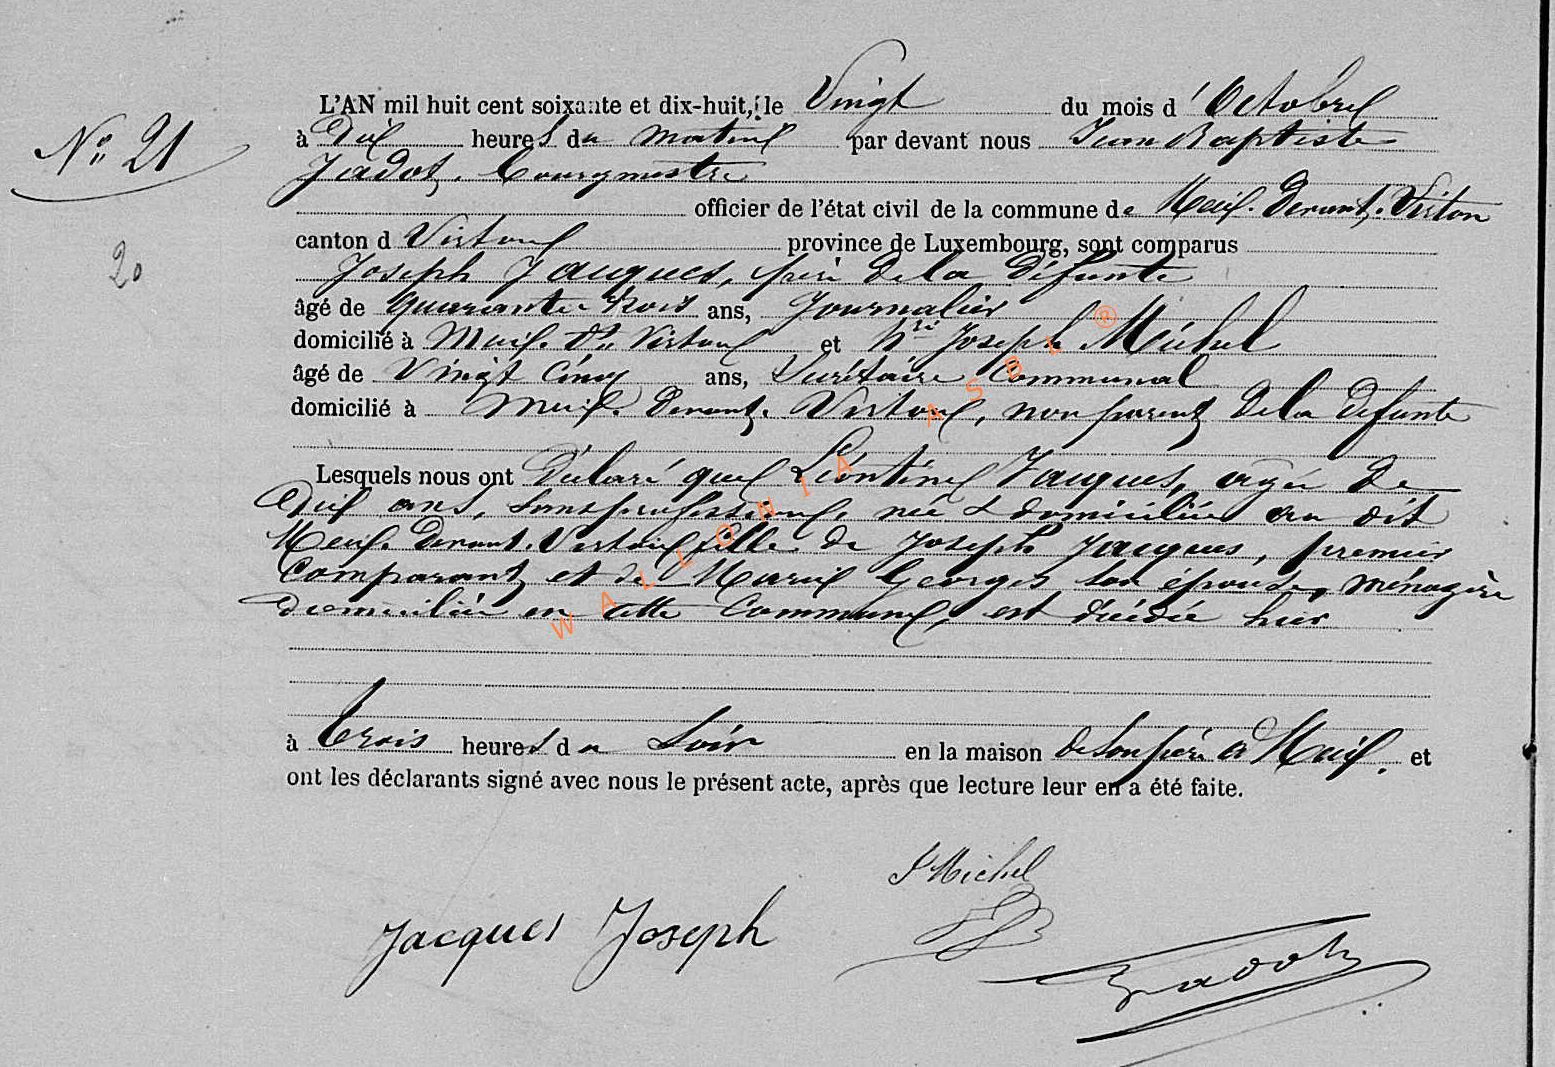 L'AN mil huit cent soixante et dix-huit, le Vingt du mois d'Octobre
N° 21
à Dix heures du matin par devant nous Jean Baptiste
Jadot, Bourgmestre
officier de l'état civil de la commune de Meix-Devant-Virton
canton d Virton province de Luxembourg, sont comparus
20
Joseph Jacques, père de la défunte
âgé de quarante trois ans, Journalier
domicilié à Meix-dt-Virton et Joseph Michel
âgé de Vingt cinq ans, Secrétaire Communal
domicilié à Meix-devant-Virton, non parent de la défunte
Lesquels nous ont Déclaré que Léontine Jacques, agée de
Dix ans, sans profession, née & domiciliée au dit
Meix-Devant-Virton fille de Joseph Jacques, premier
Comparant et de Marie Georges son épouse, ménagère
domiciliée en cette Commune, est décédée hier
à trois heures du Soir en la maison de son père à Meix, et
ont les déclarants signé avec nous le présent acte, après que lecture leur en a été faite.
J Michel
Jacques Joseph
Jadot
WALLONIA ASBL ®